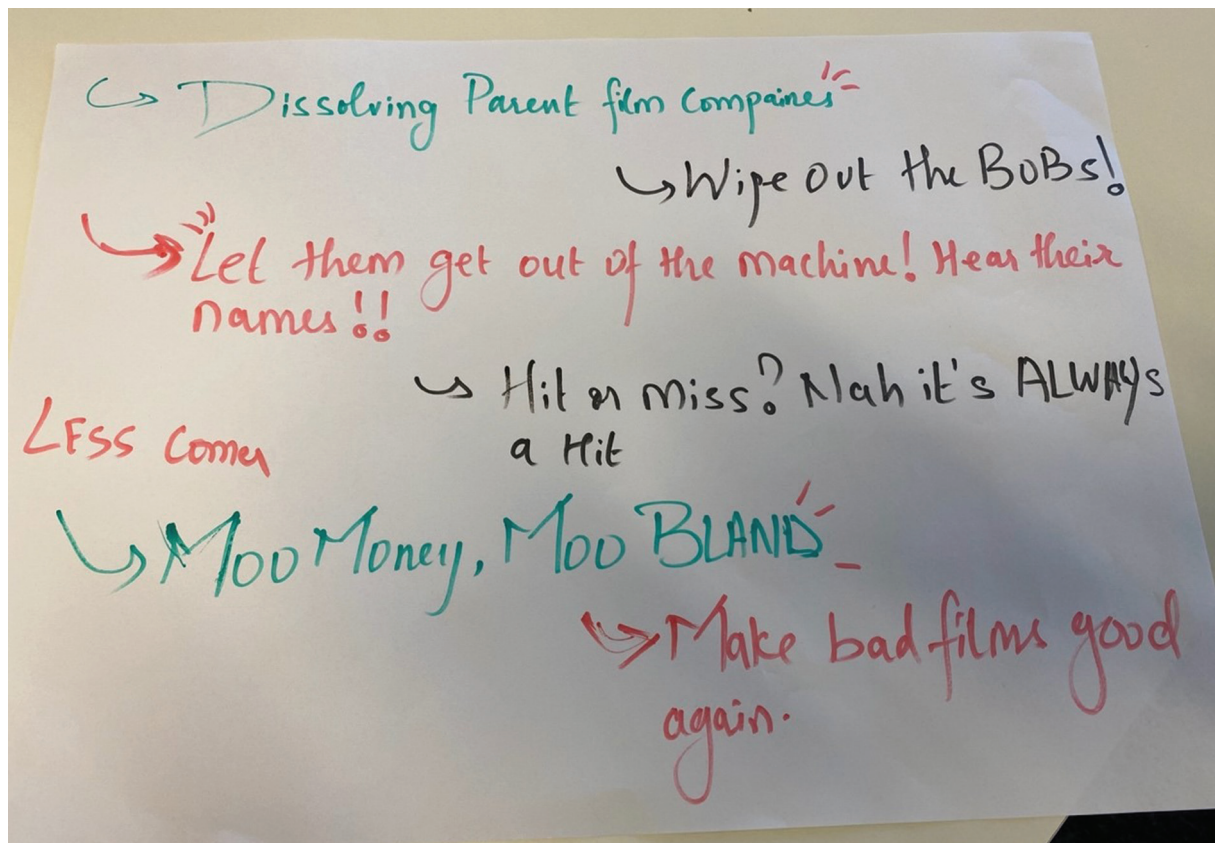 Dissolving Parent film Compaines
Wipe Out the BOBs!
Let them get out of the machine! Hear their
names!!
Hit or miss? Nah it's ALWAYS
a Hit
LESS Comer
Moo Money, Moo BLAND
Make bad films good
again.